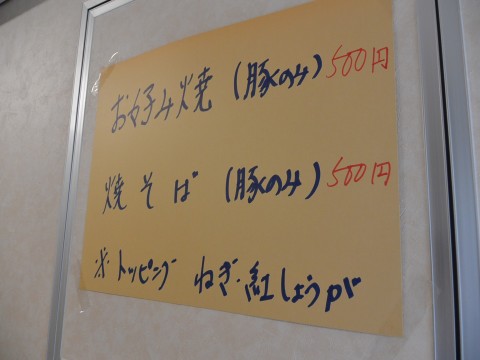 お好み焼 (豚のみ) 500円
焼そば (豚のみ) 500円
※トッピング ねぎ・紅しょうが